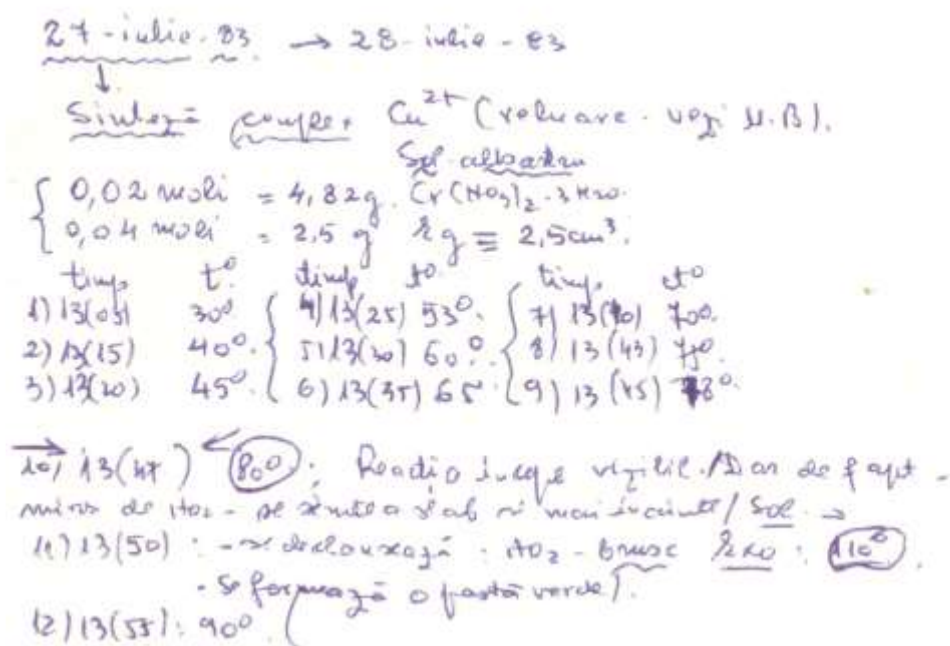 27-iulie-83 → 28-iulie-83
Sinteză complex Cu2+ (reluare. vezi N.B).
Sol. albastru
0,02 moli = 4,82g. Cr(NO3)2.3H2O.
0,04 moli = 2,5 g 2g ≡ 2,5cm3.
timp t°. timp t° timp t°
1) 13(05) 30° 4) 13(25) 53°. 7) 13(40) 70°.
2) 13(15) 40°. 5) 13(30) 60°. 8) 13(43) 75°.
3) 13(20) 45°. 6) 13(35) 65 9) 13(45) 78°.
10) 13(47) 80°; Reacția începe vizibil./Dar de fapt -
miros de NO2 - se simțea slab și mai înainte/ Sol →
11) 13(50) : - se declanșează : NO2 - brusc : 110°.
- Se formează o pastă verde).
12) 13(55): 90°.